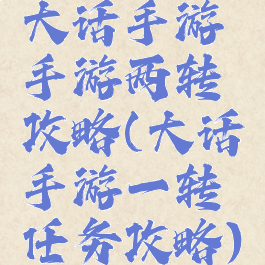 大话手游
手游两转
攻略(大话
手游一转
任务攻略)